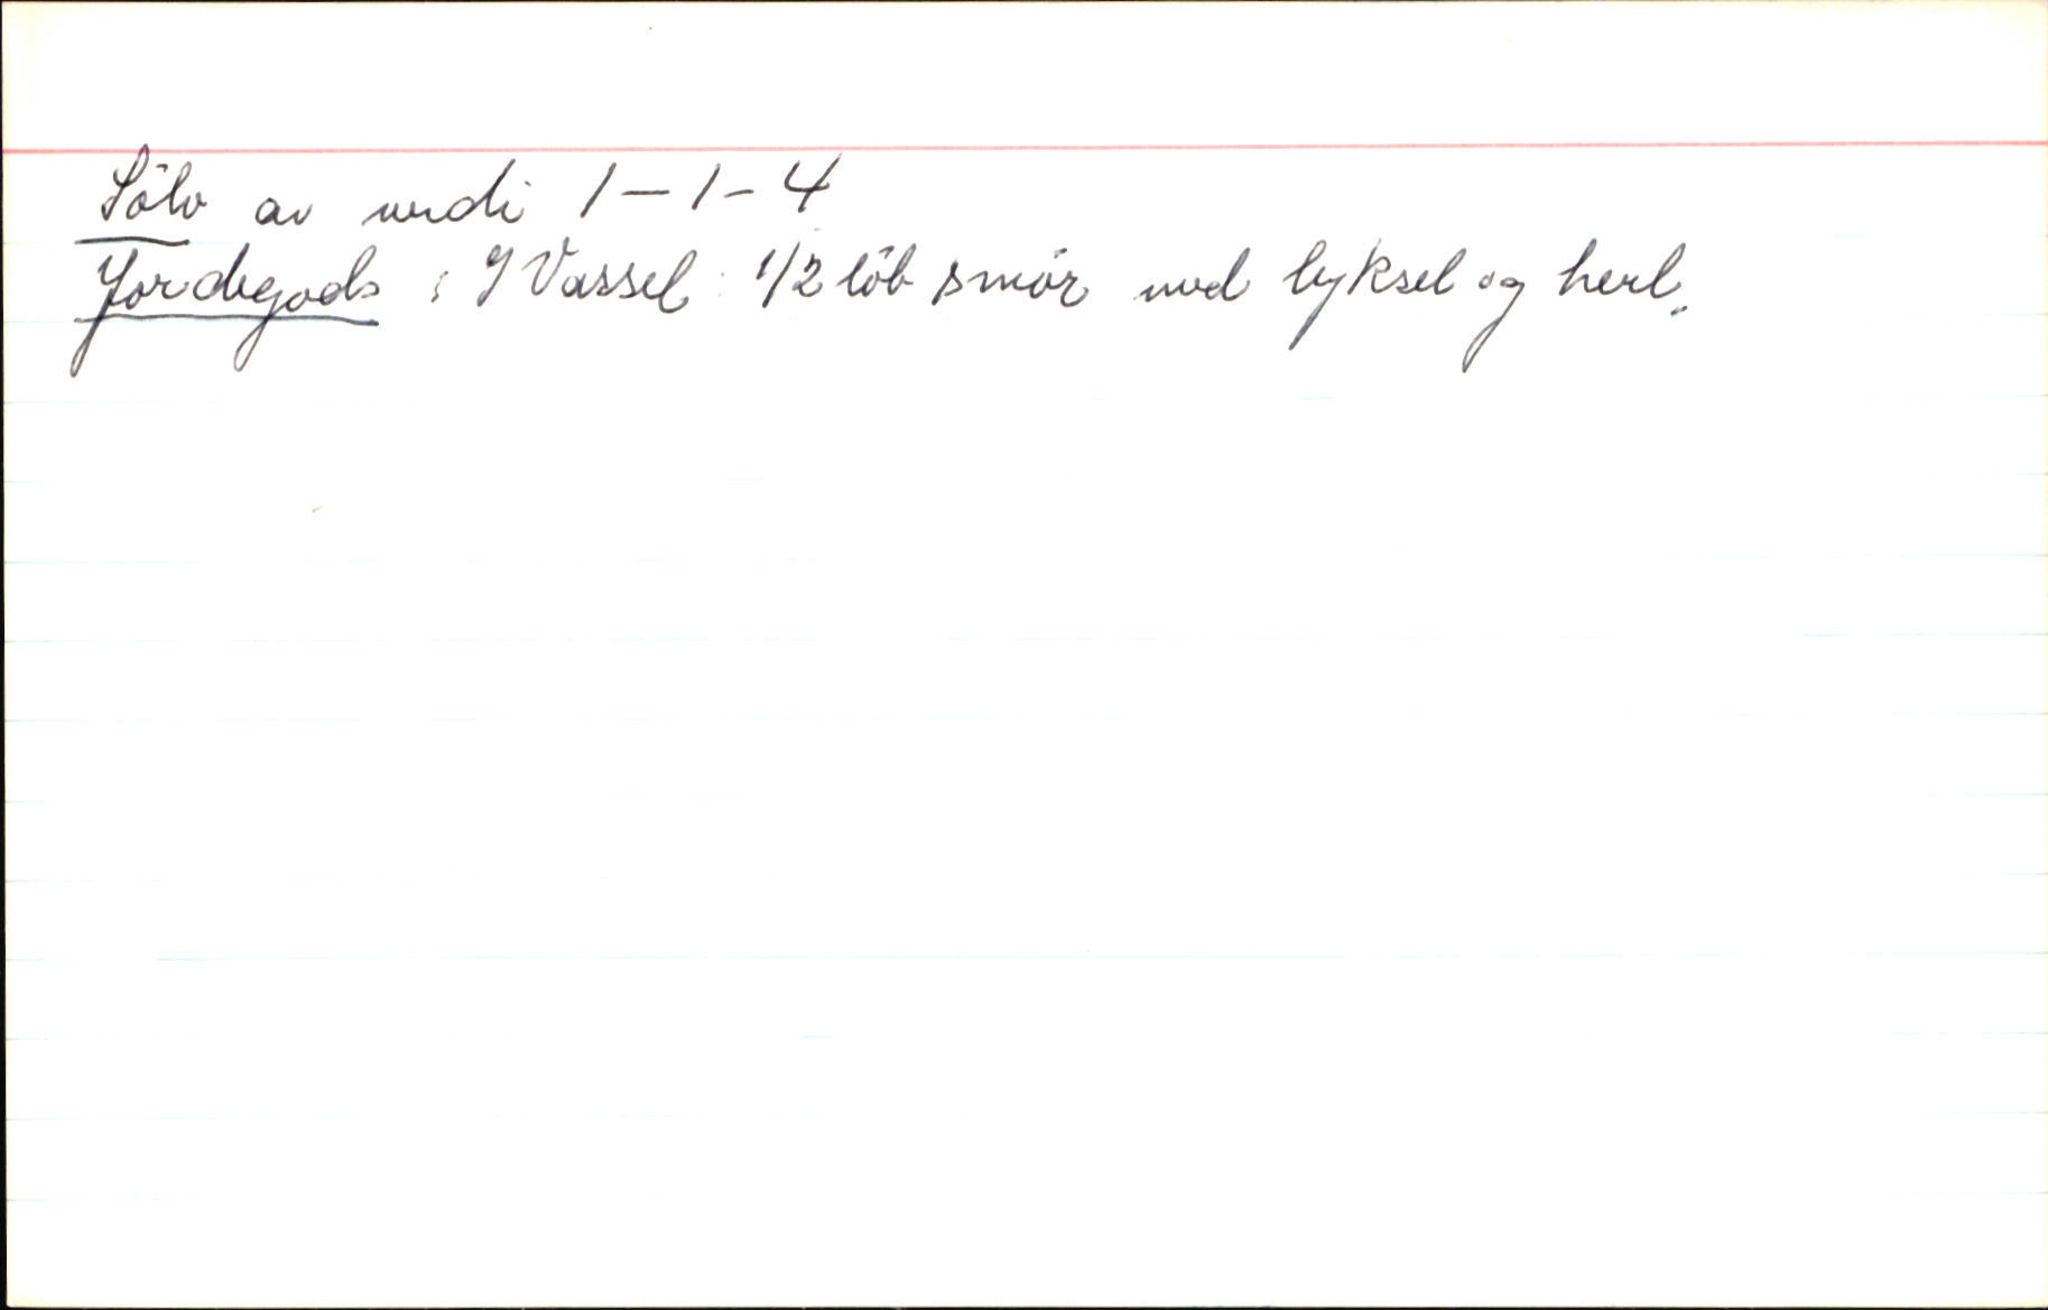 Sölv av verdi 1-1-4
Jordegods : I Vassel 1/2 löb smör med byksel og herl.